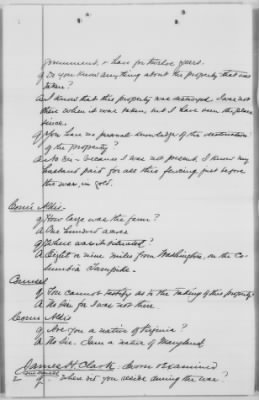 Government, & have for twelve years.
Q Do you know anything about the property that was
taken?
A I know that this property was destroyed. I was not
there when it was taken, but I have seen the place
since.
Q You have no personal knowledge of the destruction
of the property?
A No Sir - because I was not present. I know my
husband paid for all this fencing just before
the war, in gold.
Com'r Aldis.
Q How large was the farm?
A One hundred acres
Q Where was it situated?
A Eight or nine miles from Washington, on the Co-
lumbia Turnpike.
Counsel
Q You cannot testify as to the taking of this property?
A No Sir for I was not there.
Com'r Aldis
Q Are you a native of Virginia?
A No Sir. I am a native of Maryland.
James H. Clark, sworn & examined
Q Where did you reside during the war?